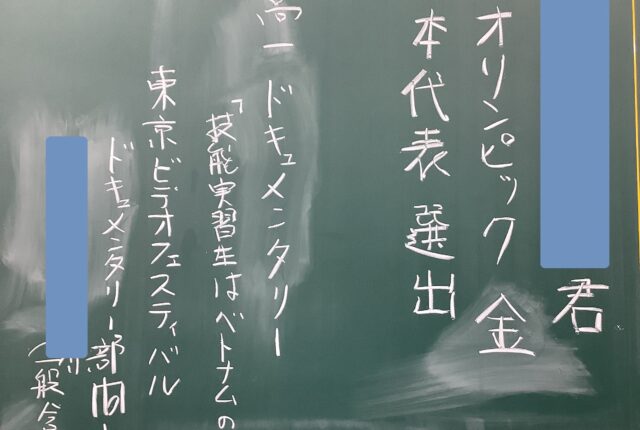 君
オリンピック 金
本代表 選出
高一 ドキュメンタリー
「技能実習生はベトナムの
東京ビデオフェスティバル
ドキュメンタリー部門
一般